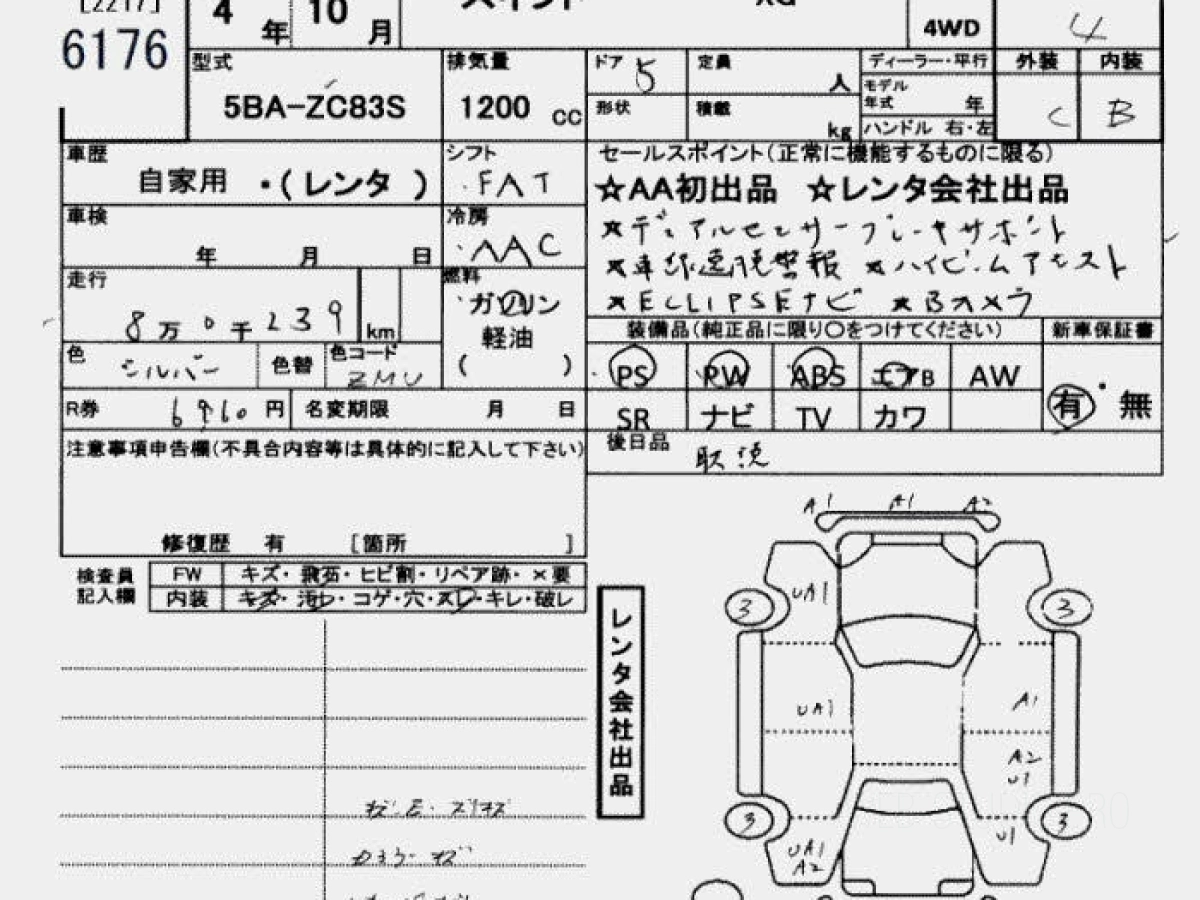 [2217]
6176
4 年 10 月
スイフト XG
4WD
4
型式
5BA-ZC83S
排気量
1200 cc
ドア 5
形状
定員 人
積載 kg
ディーラー・平行
モデル年式 年
ハンドル 右・左
外装 C
内装 B
車歴
自家用 ・(レンタ )
シフト
FAT
セールスポイント(正常に機能するものに限る)
☆AA初出品 ☆レンタ会社出品
★デュアルセンサーブレーキサポート
★車線逸脱警報 ★ハイビームアシスト
★ECLIPSEナビ ★Bカメラ
車検
年 月 日
冷房
AAC
走行
8万0千239 km
燃料
ガソリン
軽油
( )
色 シルバー
色替
色コード ZMU
R券 6960円
名変期限 月 日
装備品(純正品に限り○をつけてください)
新車保証書
PS PW ABS エアB AW
SR ナビ TV カワ
有・無
後日品
取説
注意事項申告欄(不具合内容等は具体的に記入して下さい)
修復歴 有 [箇所 ]
検査員記入欄
FW キズ・飛石・ヒビ割・リペア跡・×要
内装 キズ・汚れ・コゲ・穴・スレ・キレ・破レ
レンタ会社出品
A1 A1 A2
UA1
3 3
UA1 A1
A2
U1
3 3
UA1
A2
U1